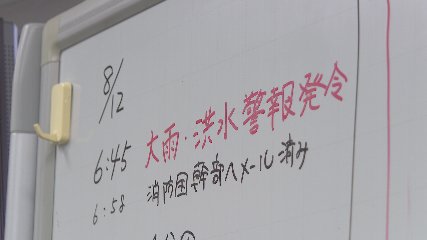 8/12
6:45 大雨・洪水警報発令
6:58 消防団幹部へメール済み